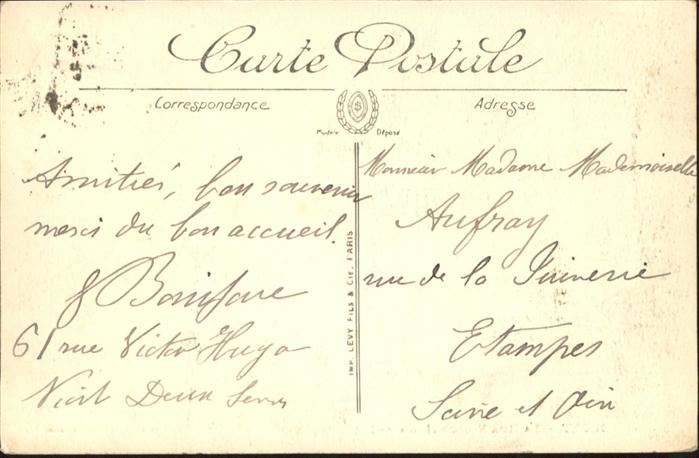 Carte Postale
Correspondance
Adresse
Modèle Déposé
Amitiés, bon souvenir
merci du bon accueil.
Boniface
61 rue Victor Hugo
Niort Deux Sevres
IMP. LEVY FILS & CIE. PARIS
Monsieur Madame Mademoiselle
Aufray
rue de la Juiverie
Etampes
Seine et Oise